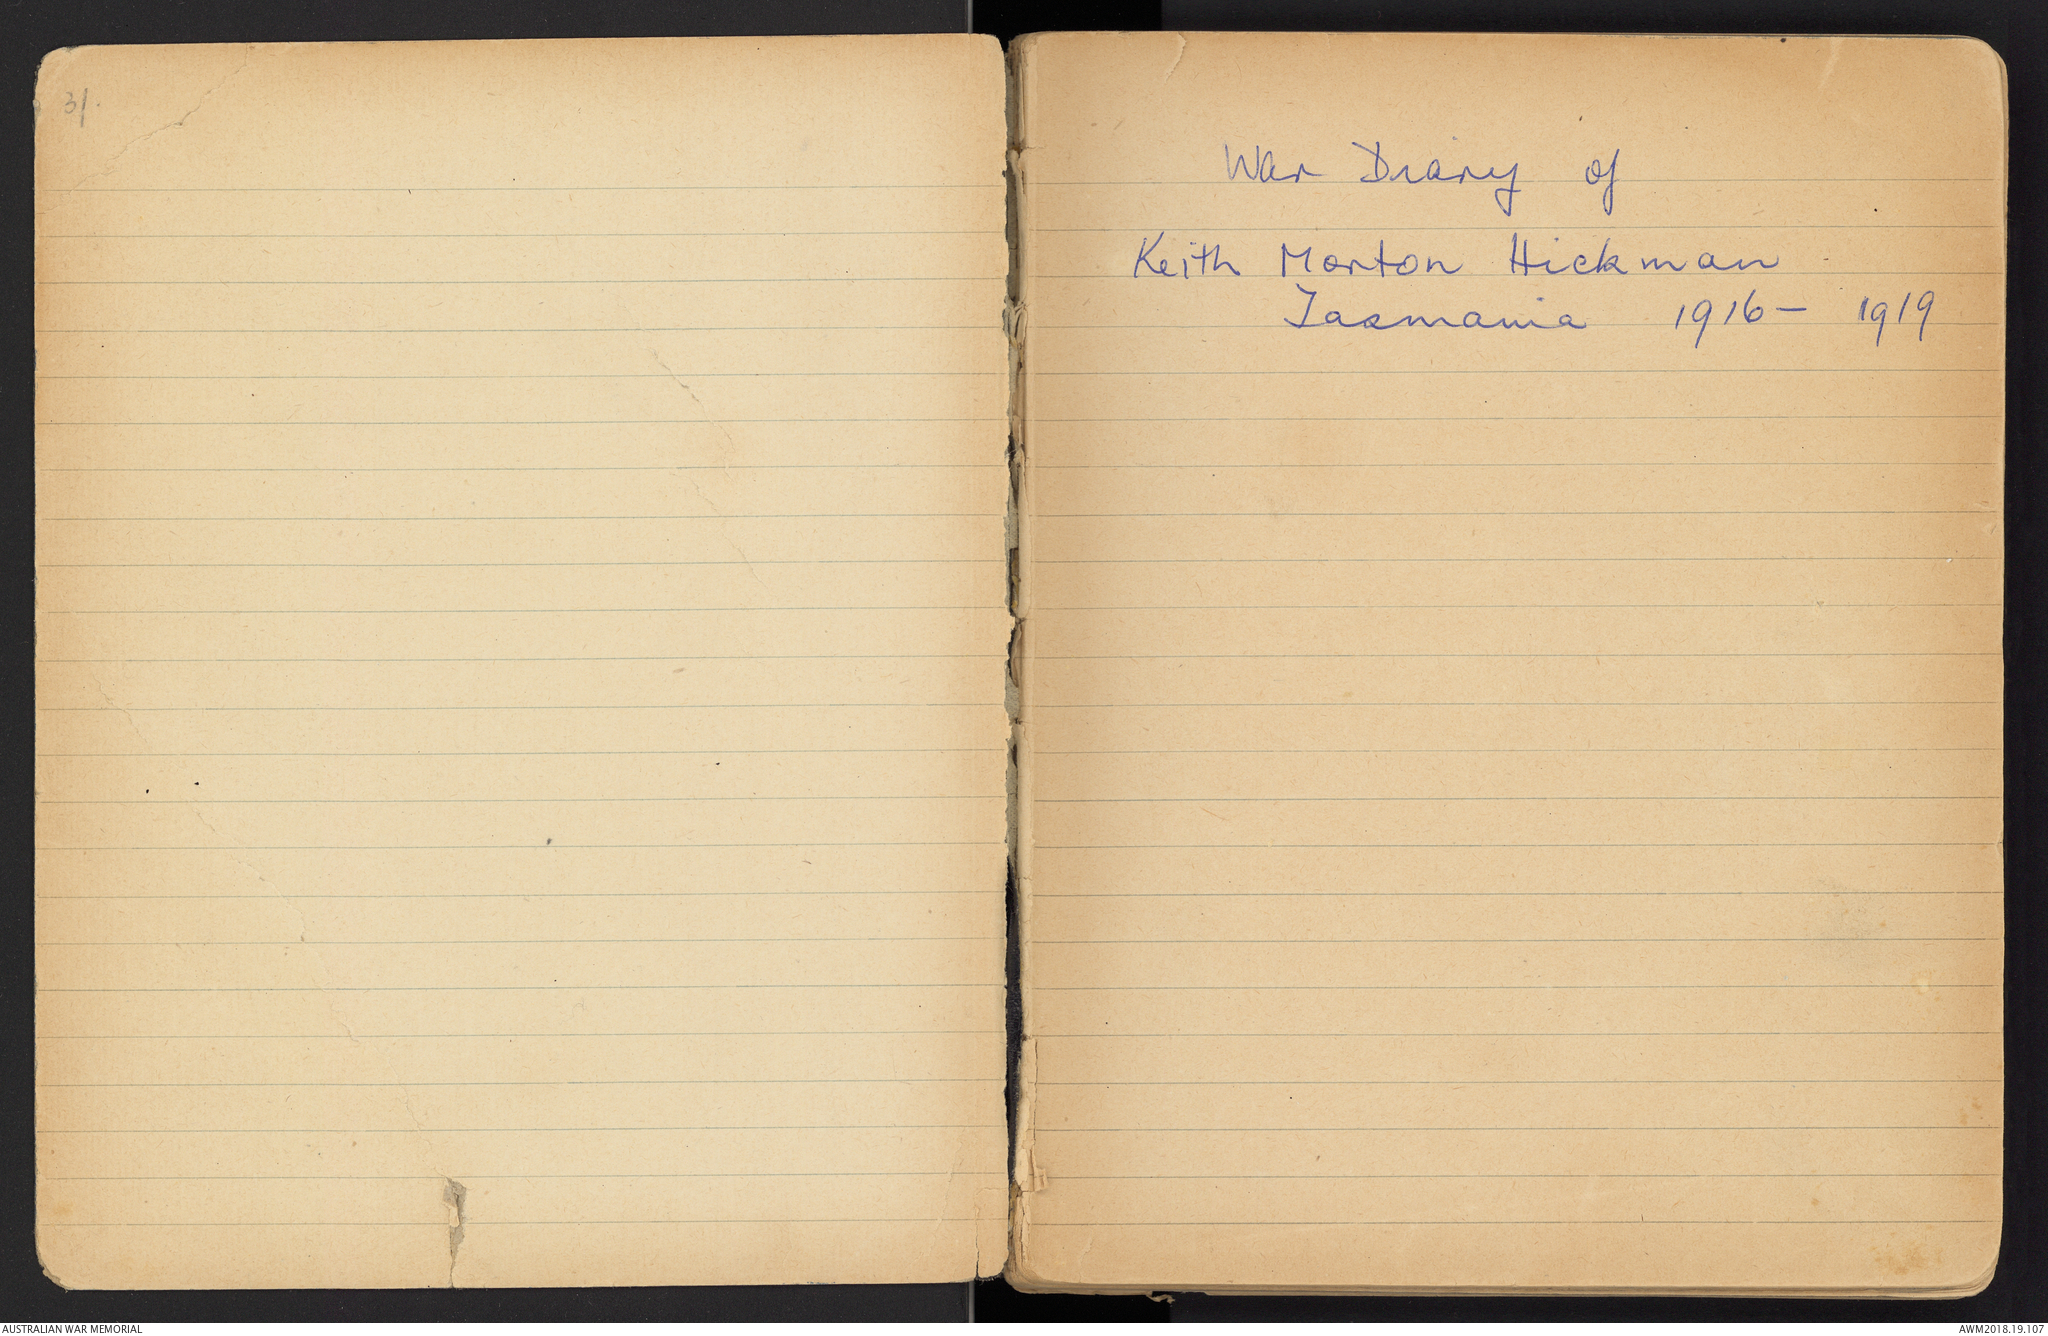 3/.
War Diary of
Keith Morton Hickman
Tasmania 1916 - 1919
AUSTRALIAN WAR MEMORIAL
AWM2018.19.107